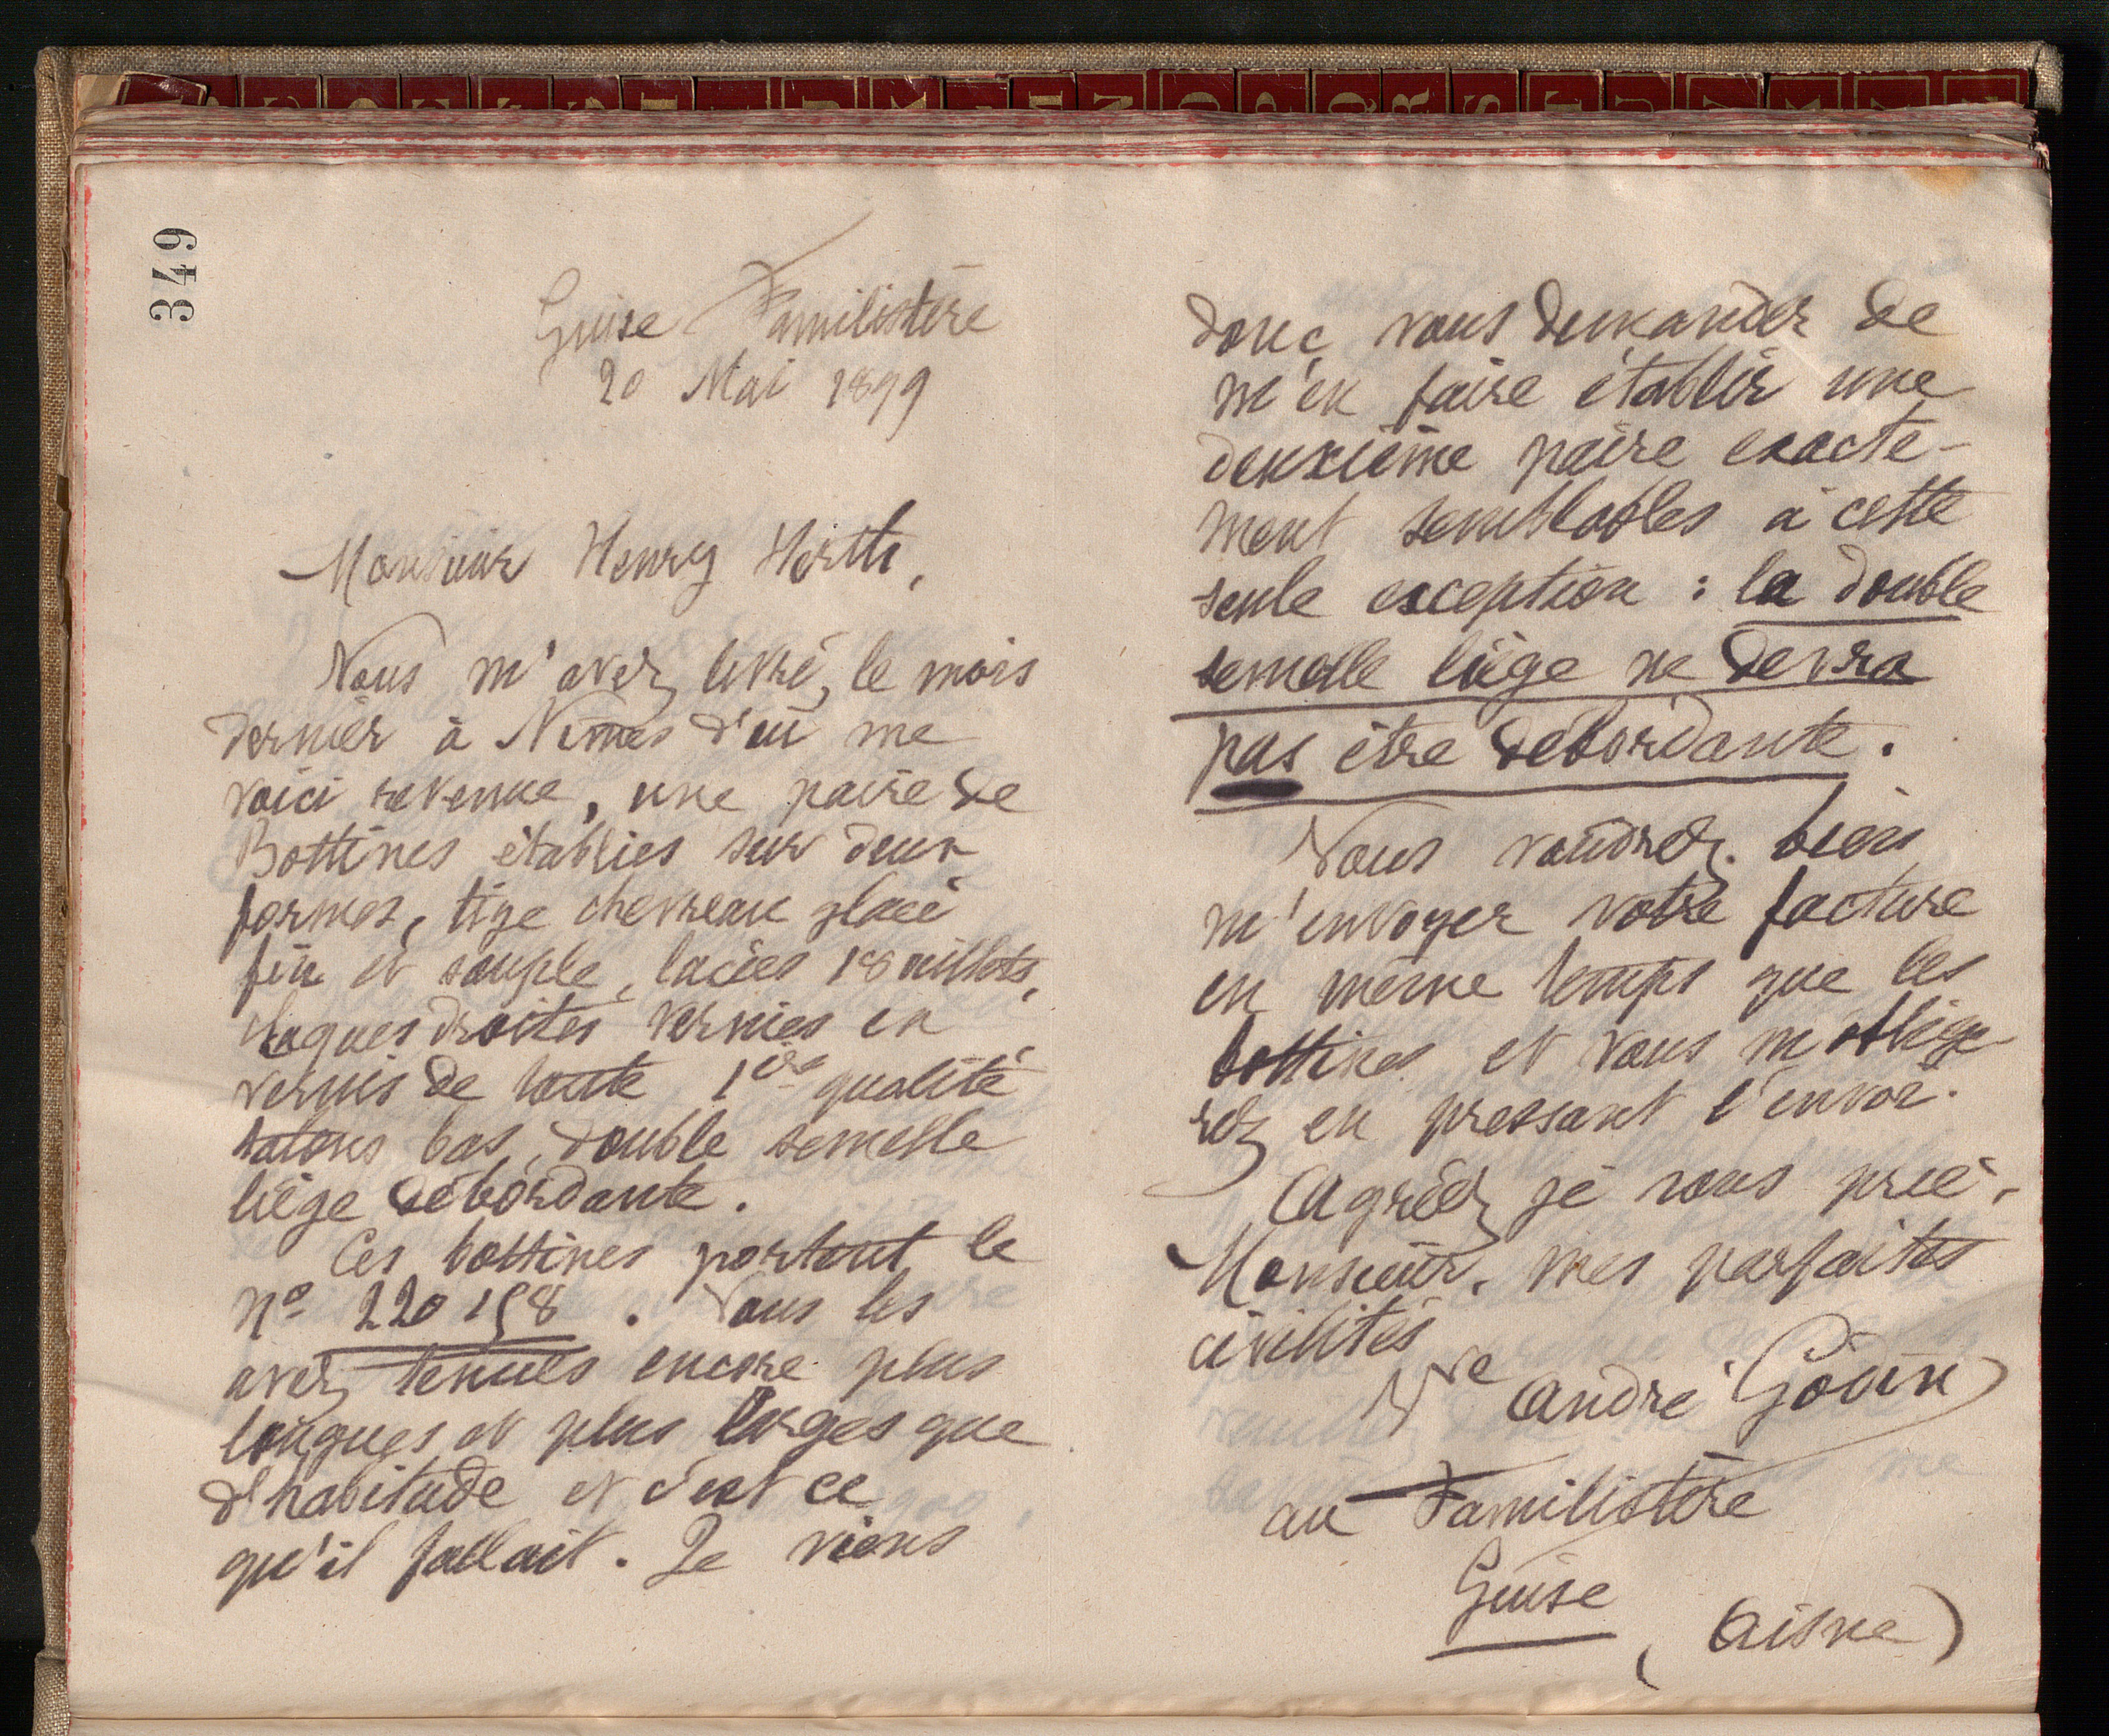 349
Guise Familistère
20 Mai 1899
Monsieur Henry Herth,
Vous m'avez livré, le mois
dernier à Nîmes d'où me
voici revenue, une paire de
Bottines établies sur deux
formes, tige chevreau glacé
fin et souple, lacées 18 œillets,
claques droites vernies en
vernis de toute 1ère qualité
talons bas, double semelle
liège débordante.
Ces bottines portent le
No 220158. Vous les
avez tenues encore plus
longues et plus larges que
d'habitude et c'est ce
qu'il fallait. Je viens
donc vous demander de
m'en faire établir une
deuxième paire exacte-
ment semblables à cette
seule exception : la double
semelle liège ne devra
pas être débordante.
Vous voudrez bien
m'envoyer votre facture
en même temps que les
bottines et vous m'oblige
rez en pressant l'envoi.
Agréez je vous prie,
Monsieur, mes parfaites
civilités
Vve André Godin
au Familistère
Guise
(Aisne)